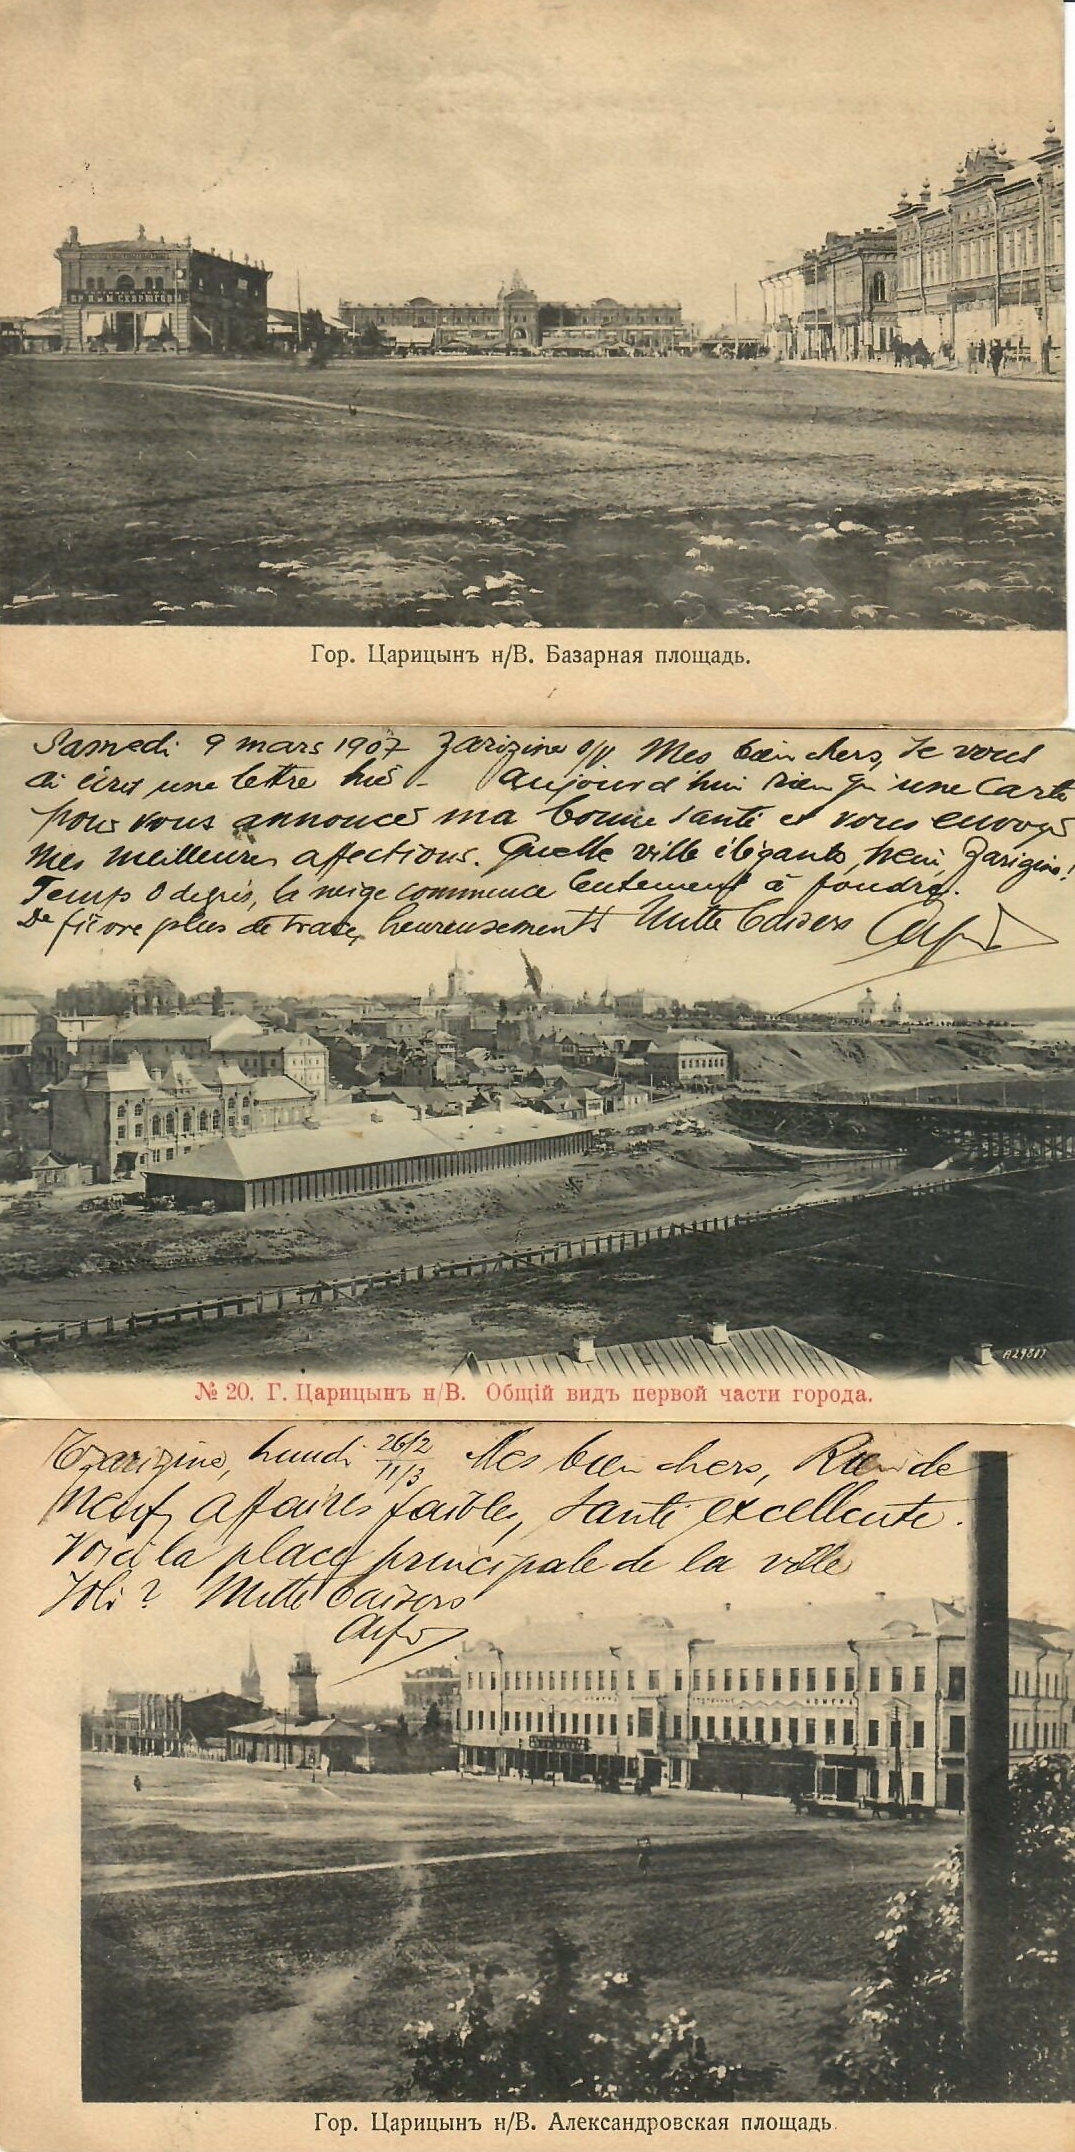 БР. Я и М СЕВРЮГОВЫ
Гор. Царицынъ н/В. Базарная площадь.
Samedi 9 mars 1907 Zarizine s/V. Mes bien chers, Je vous
ai écrit une lettre hier - aujourd'hui rien qu'une carte
pour vous annoncer ma bonne santé et vous envoyer
mes meilleures affections. Quelle ville élégante, hein, Zarizine!
Temps 0 degrés, la neige commence lentement à fondre.
De fièvre plus de trace, heureusement! Mille baisers
A29817
№ 20. Г. Царицынъ н/В. Общій видъ первой части города.
Tzarizine, Lundi 26/2 11/3 Mes bien chers, Rien de
neuf, affaires faibles, santé excellente.
Voici la place principale de la ville
Joli? Mille baisers
НОМЕРА
Гор. Царицынъ н/В. Александровская площадь.